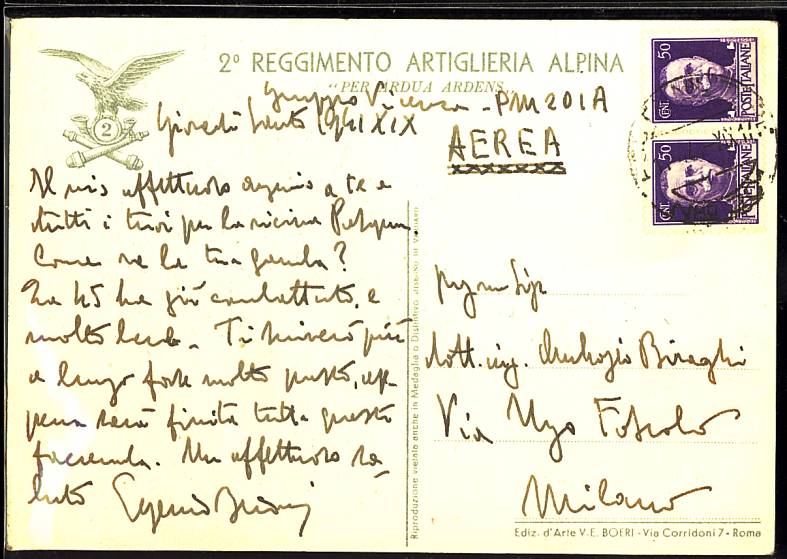 2º REGGIMENTO ARTIGLIERIA ALPINA
"PER ARDUA ARDENS"
2
Gruppo Vicenza - PM 201A
Giovedì Santo 1941 XIX
AEREA
Il mio affettuoso augurio a te e
tutti i tuoi per la vicina Pasqua
Come va la tua gamba?
La 45 ha già combattuto, e
molto bene. Ti scriverò più
a lungo forse molto presto, ap-
pena sarà finita tutta questa
faccenda. Un affettuoso sa-
luto Eugenio
dott. ing. Ambrogio Biraghi
Via Ugo Foscolo
Milano
CENT. 50 POSTE ITALIANE
CENT. 50 POSTE ITALIANE
Riproduzione vietata anche in Medaglia o Distintivo
Ediz. d'Arte V. E. BOERI - Via Corridoni 7 - Roma